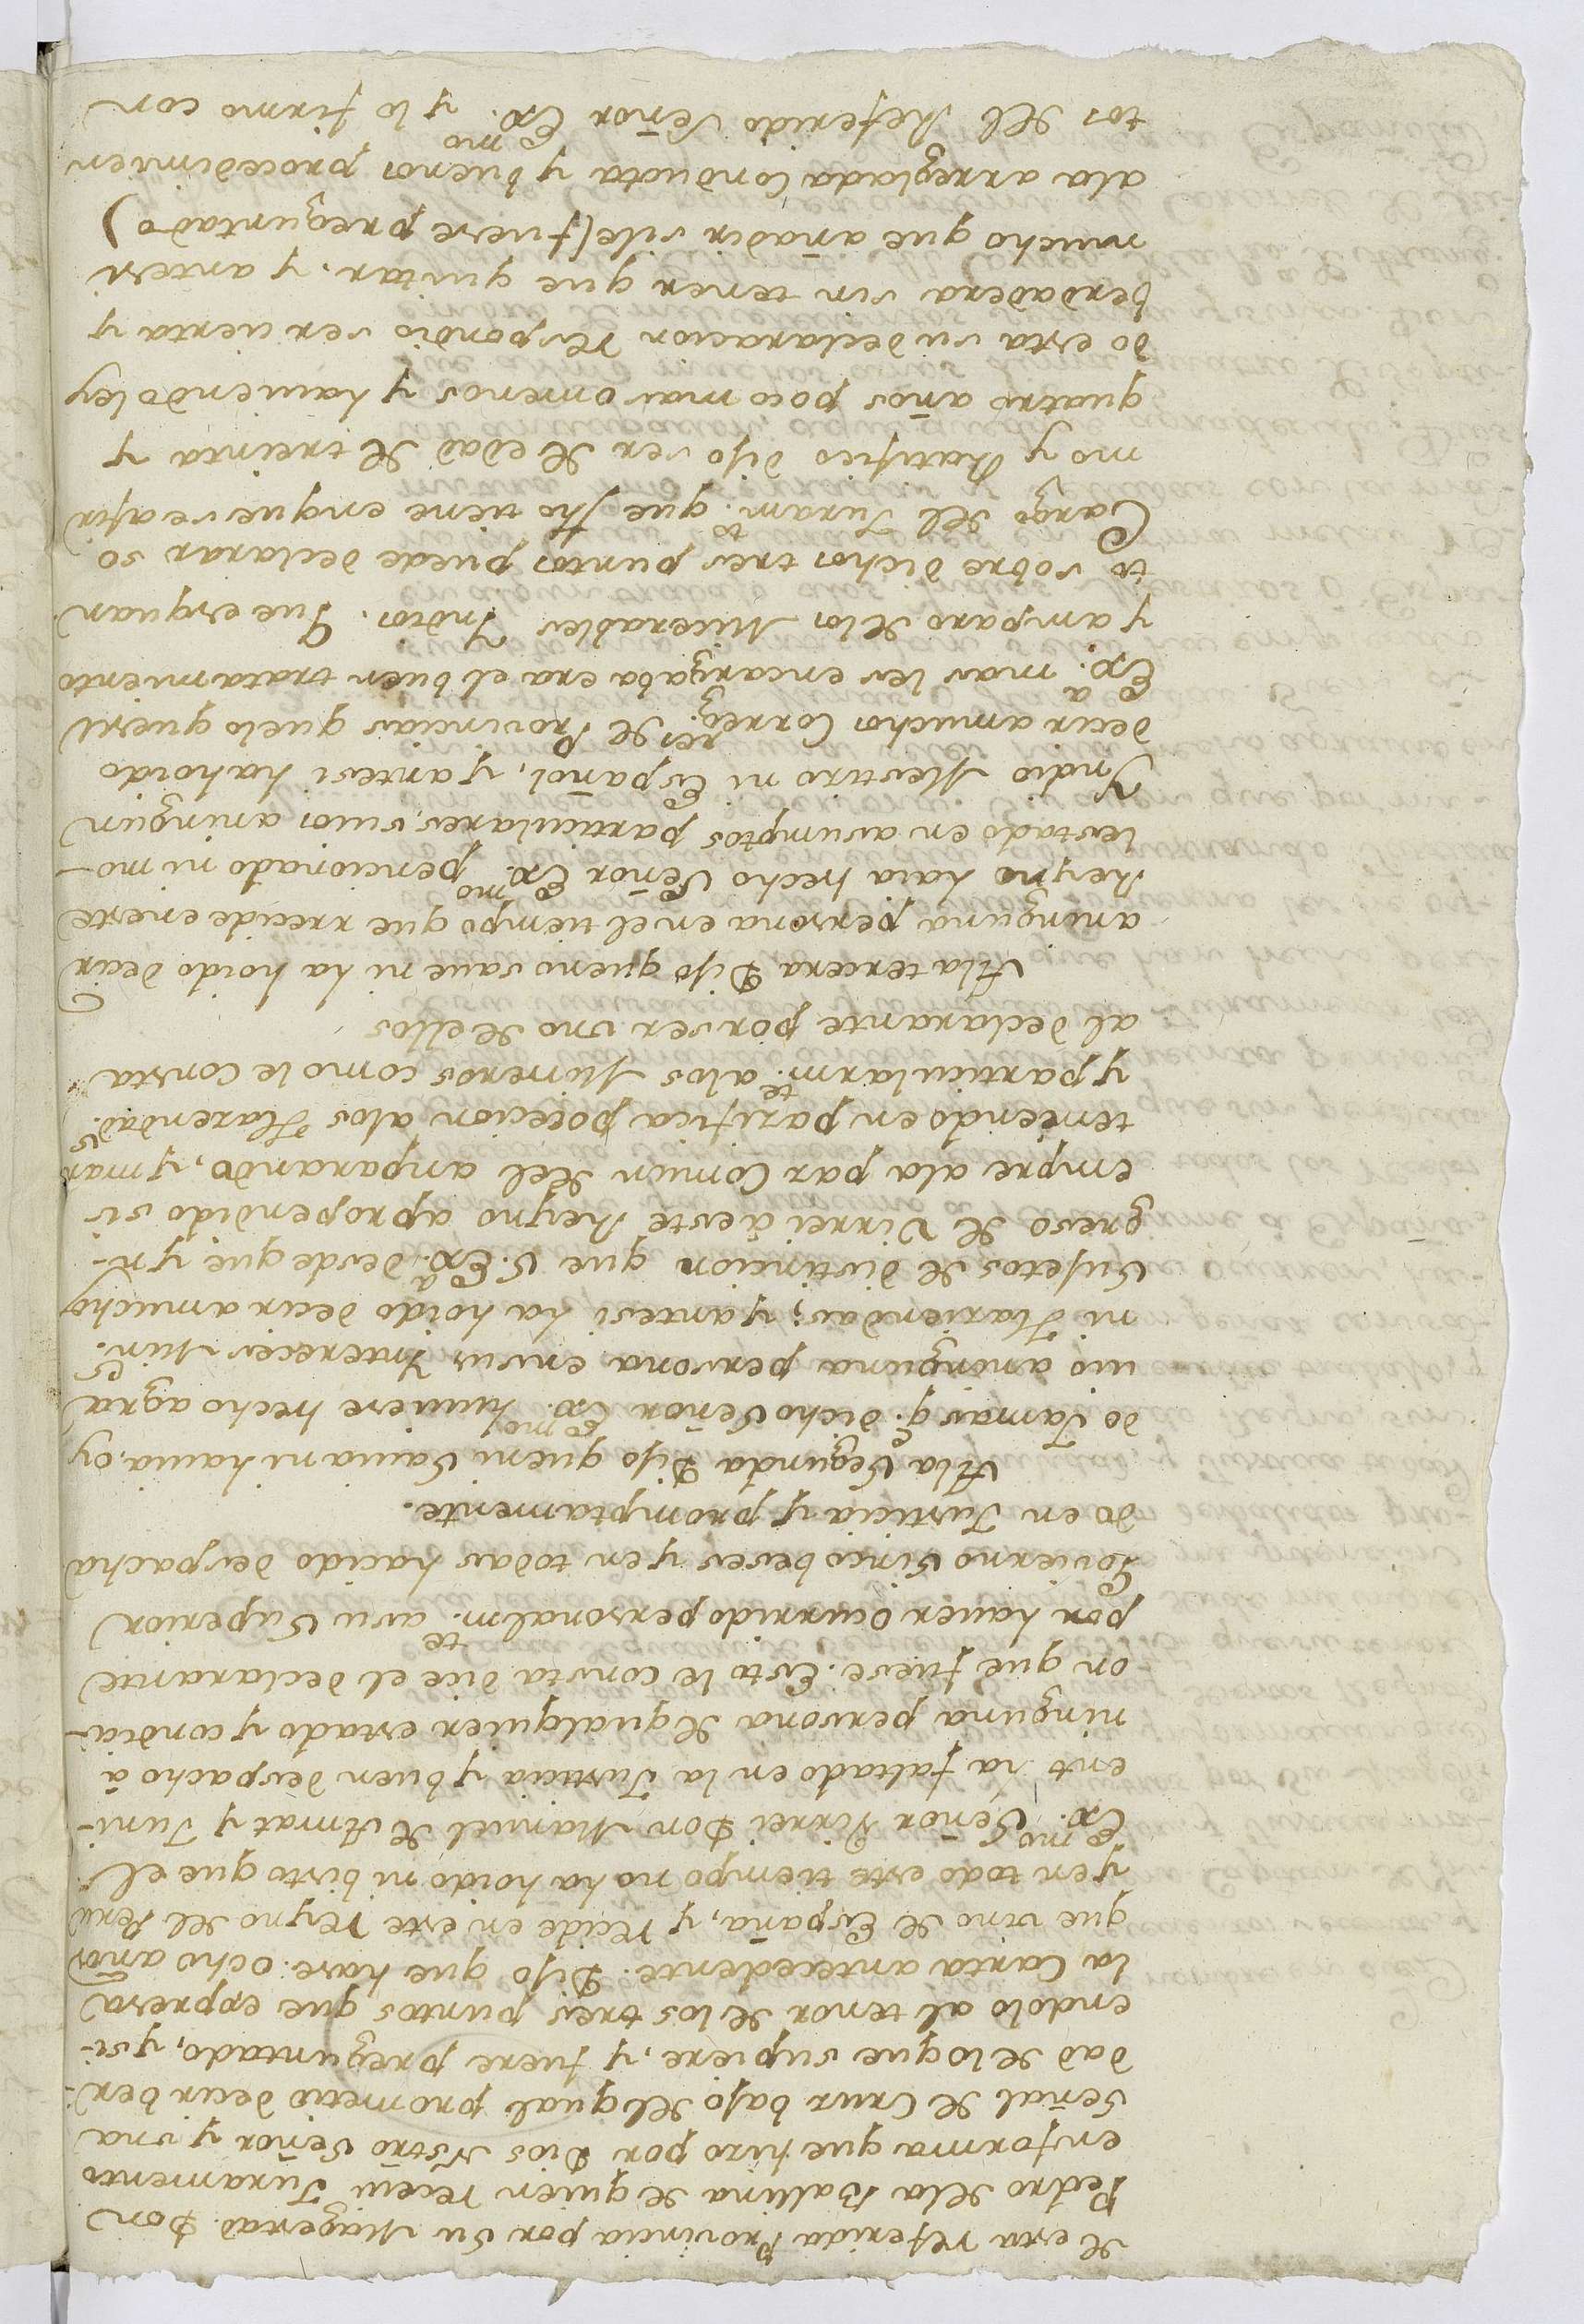 de esta referida Provincia por Su Magestad. Don
Pedro dela Ballina de quien receui Juramento
enforma que hizo por Dios Nstrō Señor y vna
Señal de Cruz bajo del qual prometio decir ber-
dad delo que supiere, y fuere preguntado, y si-
endolo al tenor de los tres puntos que expresa
la Carta antecedente. Dijo que hase. ocho años
que vino de España, y recide en este reyno del Perú
y en todo este tiempo no ha hoido ni bisto que el
Ex.mo Señor Virrei Don Manuel de Amat y Juni-
ent ha faltado en la Justicia y buen despacho à
ninguna persona de qualquier estado y condici-
on que fuese. Esto le consta dice el declarante
por hauer ocurrido personalm.te asu Superior
Govierno Sinco beses y en todas hacido despacha
do en Justicia y promptamente.
Ala Segunda Dijo queni Sauia ni hauia, oy
do Jamas q.e dicho Señor Ex.mo huuiere hecho agra
uio aningiona persona ensus Ynterecés Min.s
ni Haziendas; y antesi ha hoido decir amucho
Sujetos de distincion que S. Ex.a desde que yn-
greso de Virrei à este Reyno apropendido si
empre ala paz Comun del anparando, y man
teniendo en pazifica pocecion alos Hazendad.s
y particularm.te alos Mineros como le consta
al declarante por ser uno de ellos
Ala tercera Dijo queno saue ni ha hoido Decir
aninguna persona en el tiempo que rrecide eneste
Reyno haia hecho Señor Ex.mo pencionado ni mo-
lestado en asumptos particulares, suios aningun
Yndio Mestizo ni Español, y antesi hahoido
decir amuchos Correg.res de Provincias quelo queSu
Ex.a mas les encargaba era el buen tratamiento
y amparo delos Micerables Yndios. Que esquan
to sobre dichos tres puntos puede declarar so
Cargo del Juram.to que fho tiene enque se afir
mo y Ratifico dijo ser de edad de treinta y
quatro años poco mas omenos y hauiendoley
do esta su declaracion respondio ser cierta y
berdadera sin tener que quitar. y antesi
mucho que añadir sile (fuere preguntado)
ala arreglada Conducta y buenos procedimien
tos del Referido Señor Ex.mo y lo firmo con